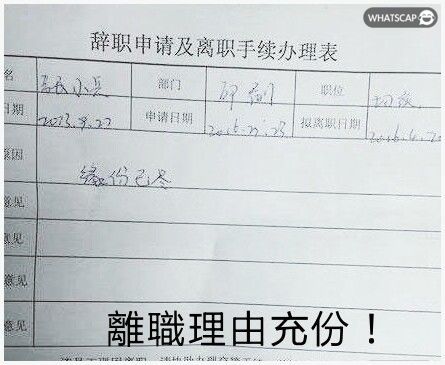 WHATSCAP
辞职申请及离职手续办理表
名 部门 印刷 职位 切成
日期 2013.9.22 申请日期 拟离职日期
原因 缘份已尽
意见
意见
意见
意见
離職理由充份！